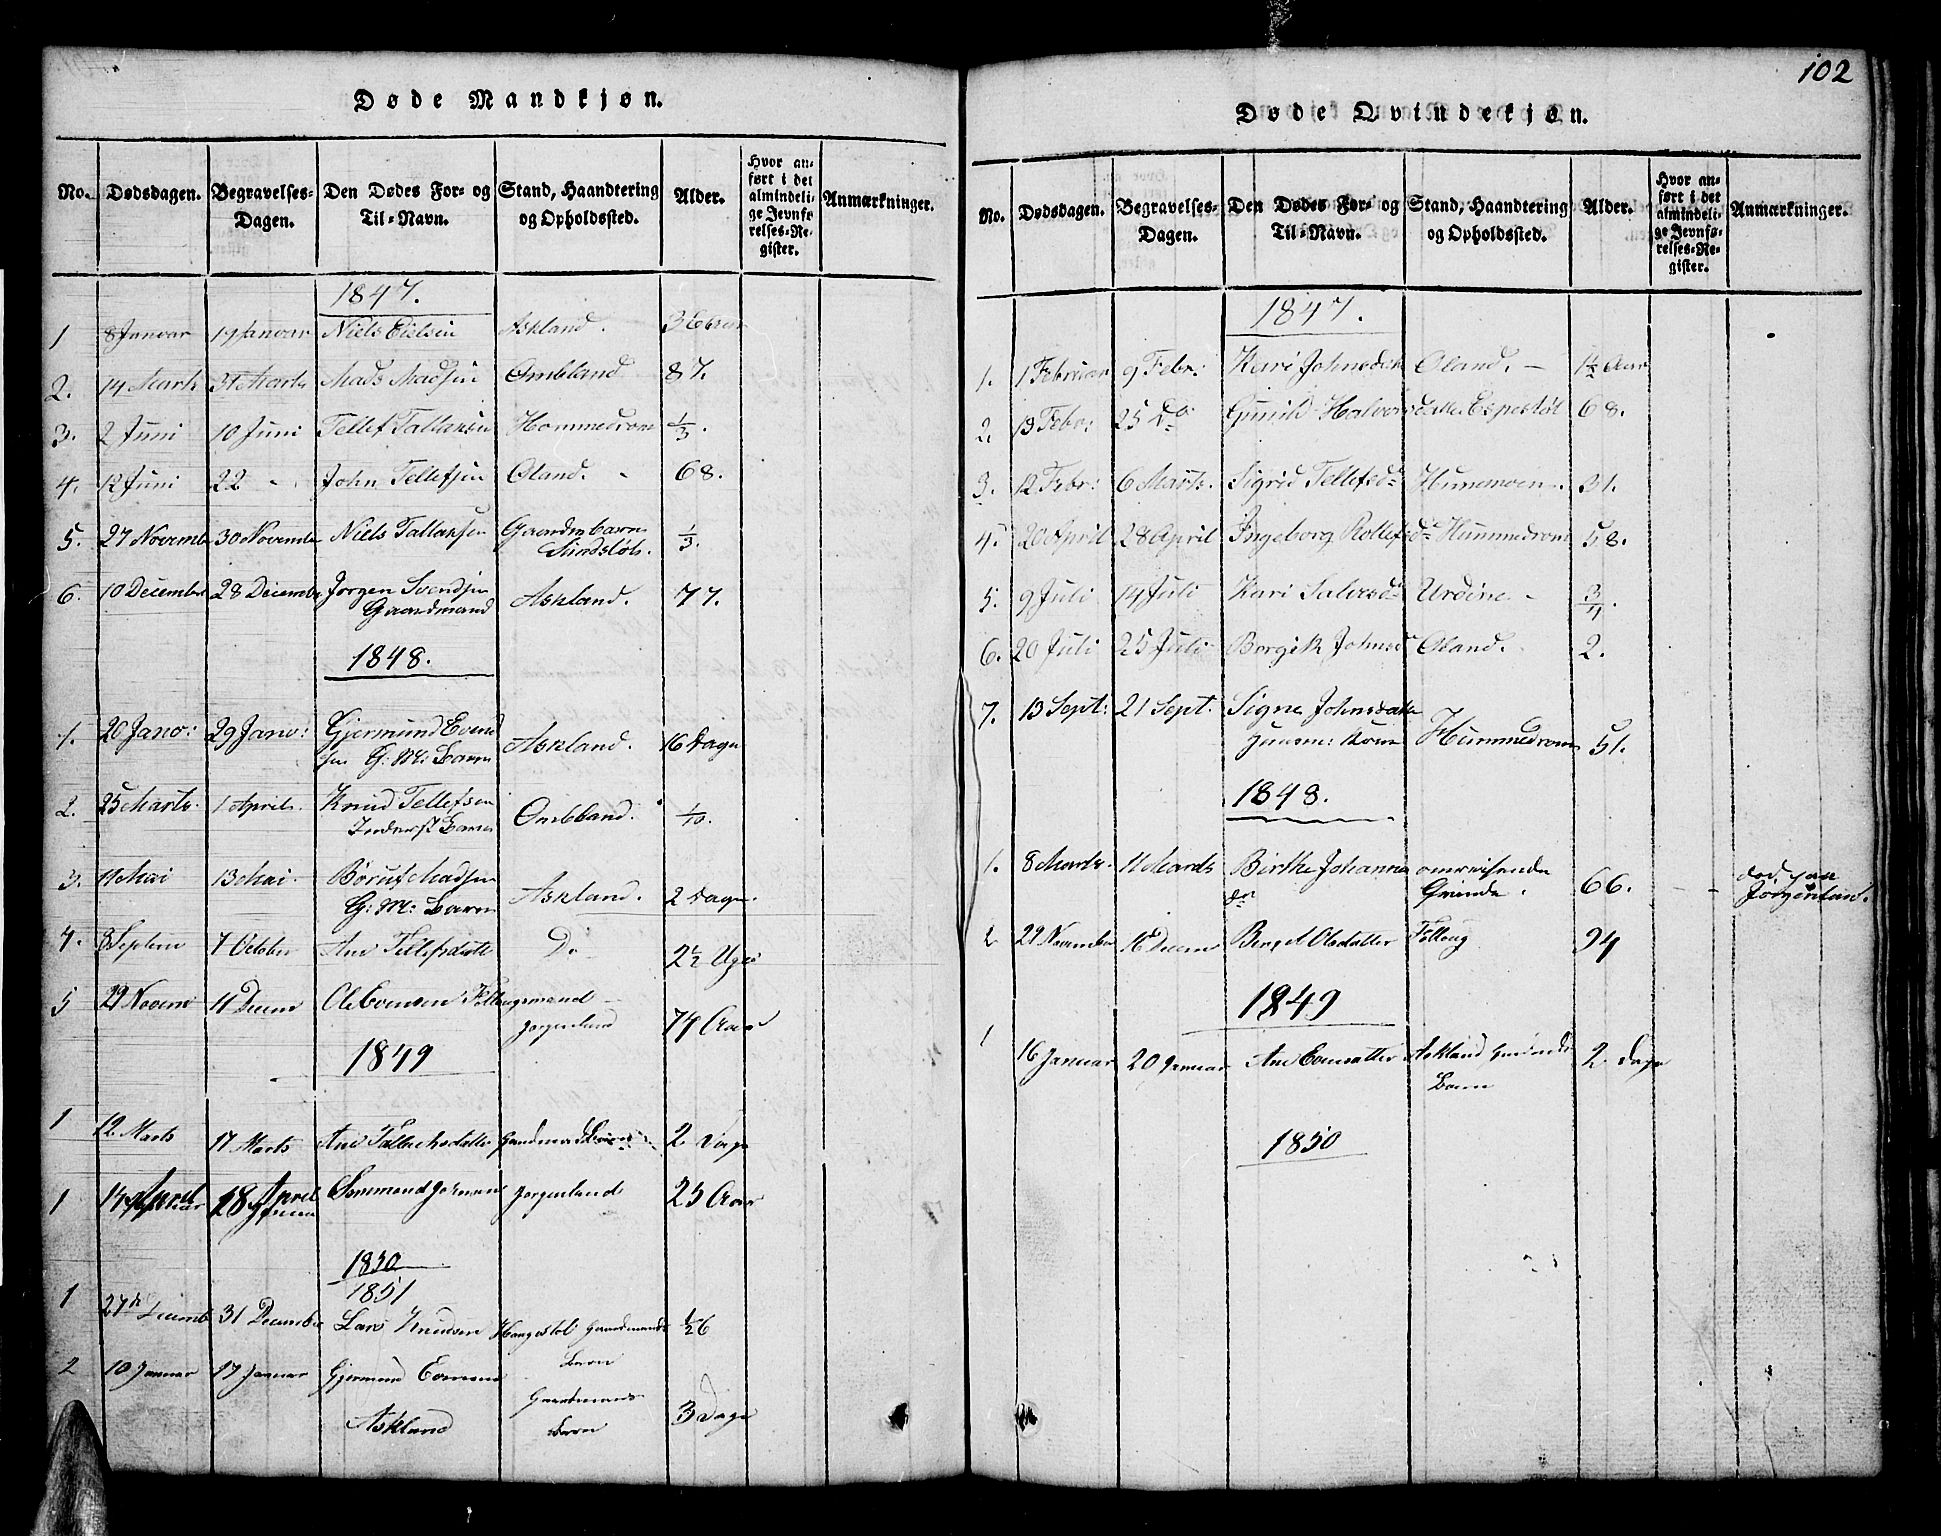 102
Døde Mandkjøn.
No. Dødsdagen. Begravelses-Dagen. Den Dødes For- og Til-Navn. Stand, Haandtering og Opholdssted. Alder. Hvor anført i det almindelige Jevnførelses-Register. Anmærkninger.
1847.
1 8 Januar 19 Januar Niels Eielsen Askland.
2. 14 Marts 31 Marts Mads Madsen Ombland 87.
3. 2 Juni 10 Juni Tellef Tallaksen Hommedrom 1/3.
4. 12 Juni 22 " John Tellefsen Øland. " 68.
5. 27 November 30 November Niels Tallaksen Gaardm barn 1/3.
6. 10 December 28 December Jørgen Svendsen Askland. 77.
Gaardmand
1848.
1. 20 Janv: 29 Janv: Gjermund Evend
sen G: M: Barn Askland. 16 Dage
2. 25 Marts. 1 April. Knud Tellefsen
Inderst Barn Ombland. 1/10.
3. 11 Mai 13 Mai. Børuf Madsen
G: M: Barn Askland. 2 Dage.
4. 8 Septem 7 October Ane Tellefsdatte Do 2 1/2 Uge
5 29 Novem 11 Decem Ole Evensen Føllougsmand
Jørgenland 74 Aar
1849
1 12 Marts 17 Marts Ane 2 Dage
1 14 April 18 April Jørgenland 25 Aar
1850
1851
1 27de Decemb 31 December Lars Knudsen Haugestøl Gaardmands 1/26
Barn
2 10 Januar 17 Januar Gjermund Evensen
Gaardmands
Askland Barn 3 Dage
Døde Qvindekjøn.
No. Dødsdagen. Begravelses-Dagen. Den Dødes For- og Til-Navn. Stand, Haandtering og Opholdssted. Alder. Hvor anført i det almindelige Jevnførelses-Register. Anmærkninger.
1847.
1. 1 Februar 9 Febr: Kari Johnsdatt Øland. – 1 1/2 Aar
2. 13 Febr: 25 Do Gunild Halvorsdatte Espestøl 68.
3. 12 Febr: 6 Marts. Sigrid Tellefsdr Hunemoen. 31.
4. 20 April 28 April Ingeborg Rollefsdr Hummedrom 58.
5. 9 Juli 14 Juli Kari Salvesdr Urdine – 3/4.
6. 20 Juli 25 Juli Borgit Johnsd Øland. 2.
7. 13 Sept: 21 Sept. Signe Johnsdatte
Hummedrom 51.
1848.
1. 8 Marts. 11 Marts Birthe Johanne omreisende
dr Qvinde. 66. død paa
Jørgenland.
2 29 November 16 Decem Berget Olsdatter Følloug 94
1849
1 16 Januar 20 Januar Ane Evensdatter Askland 2 Dage
Barn
1850